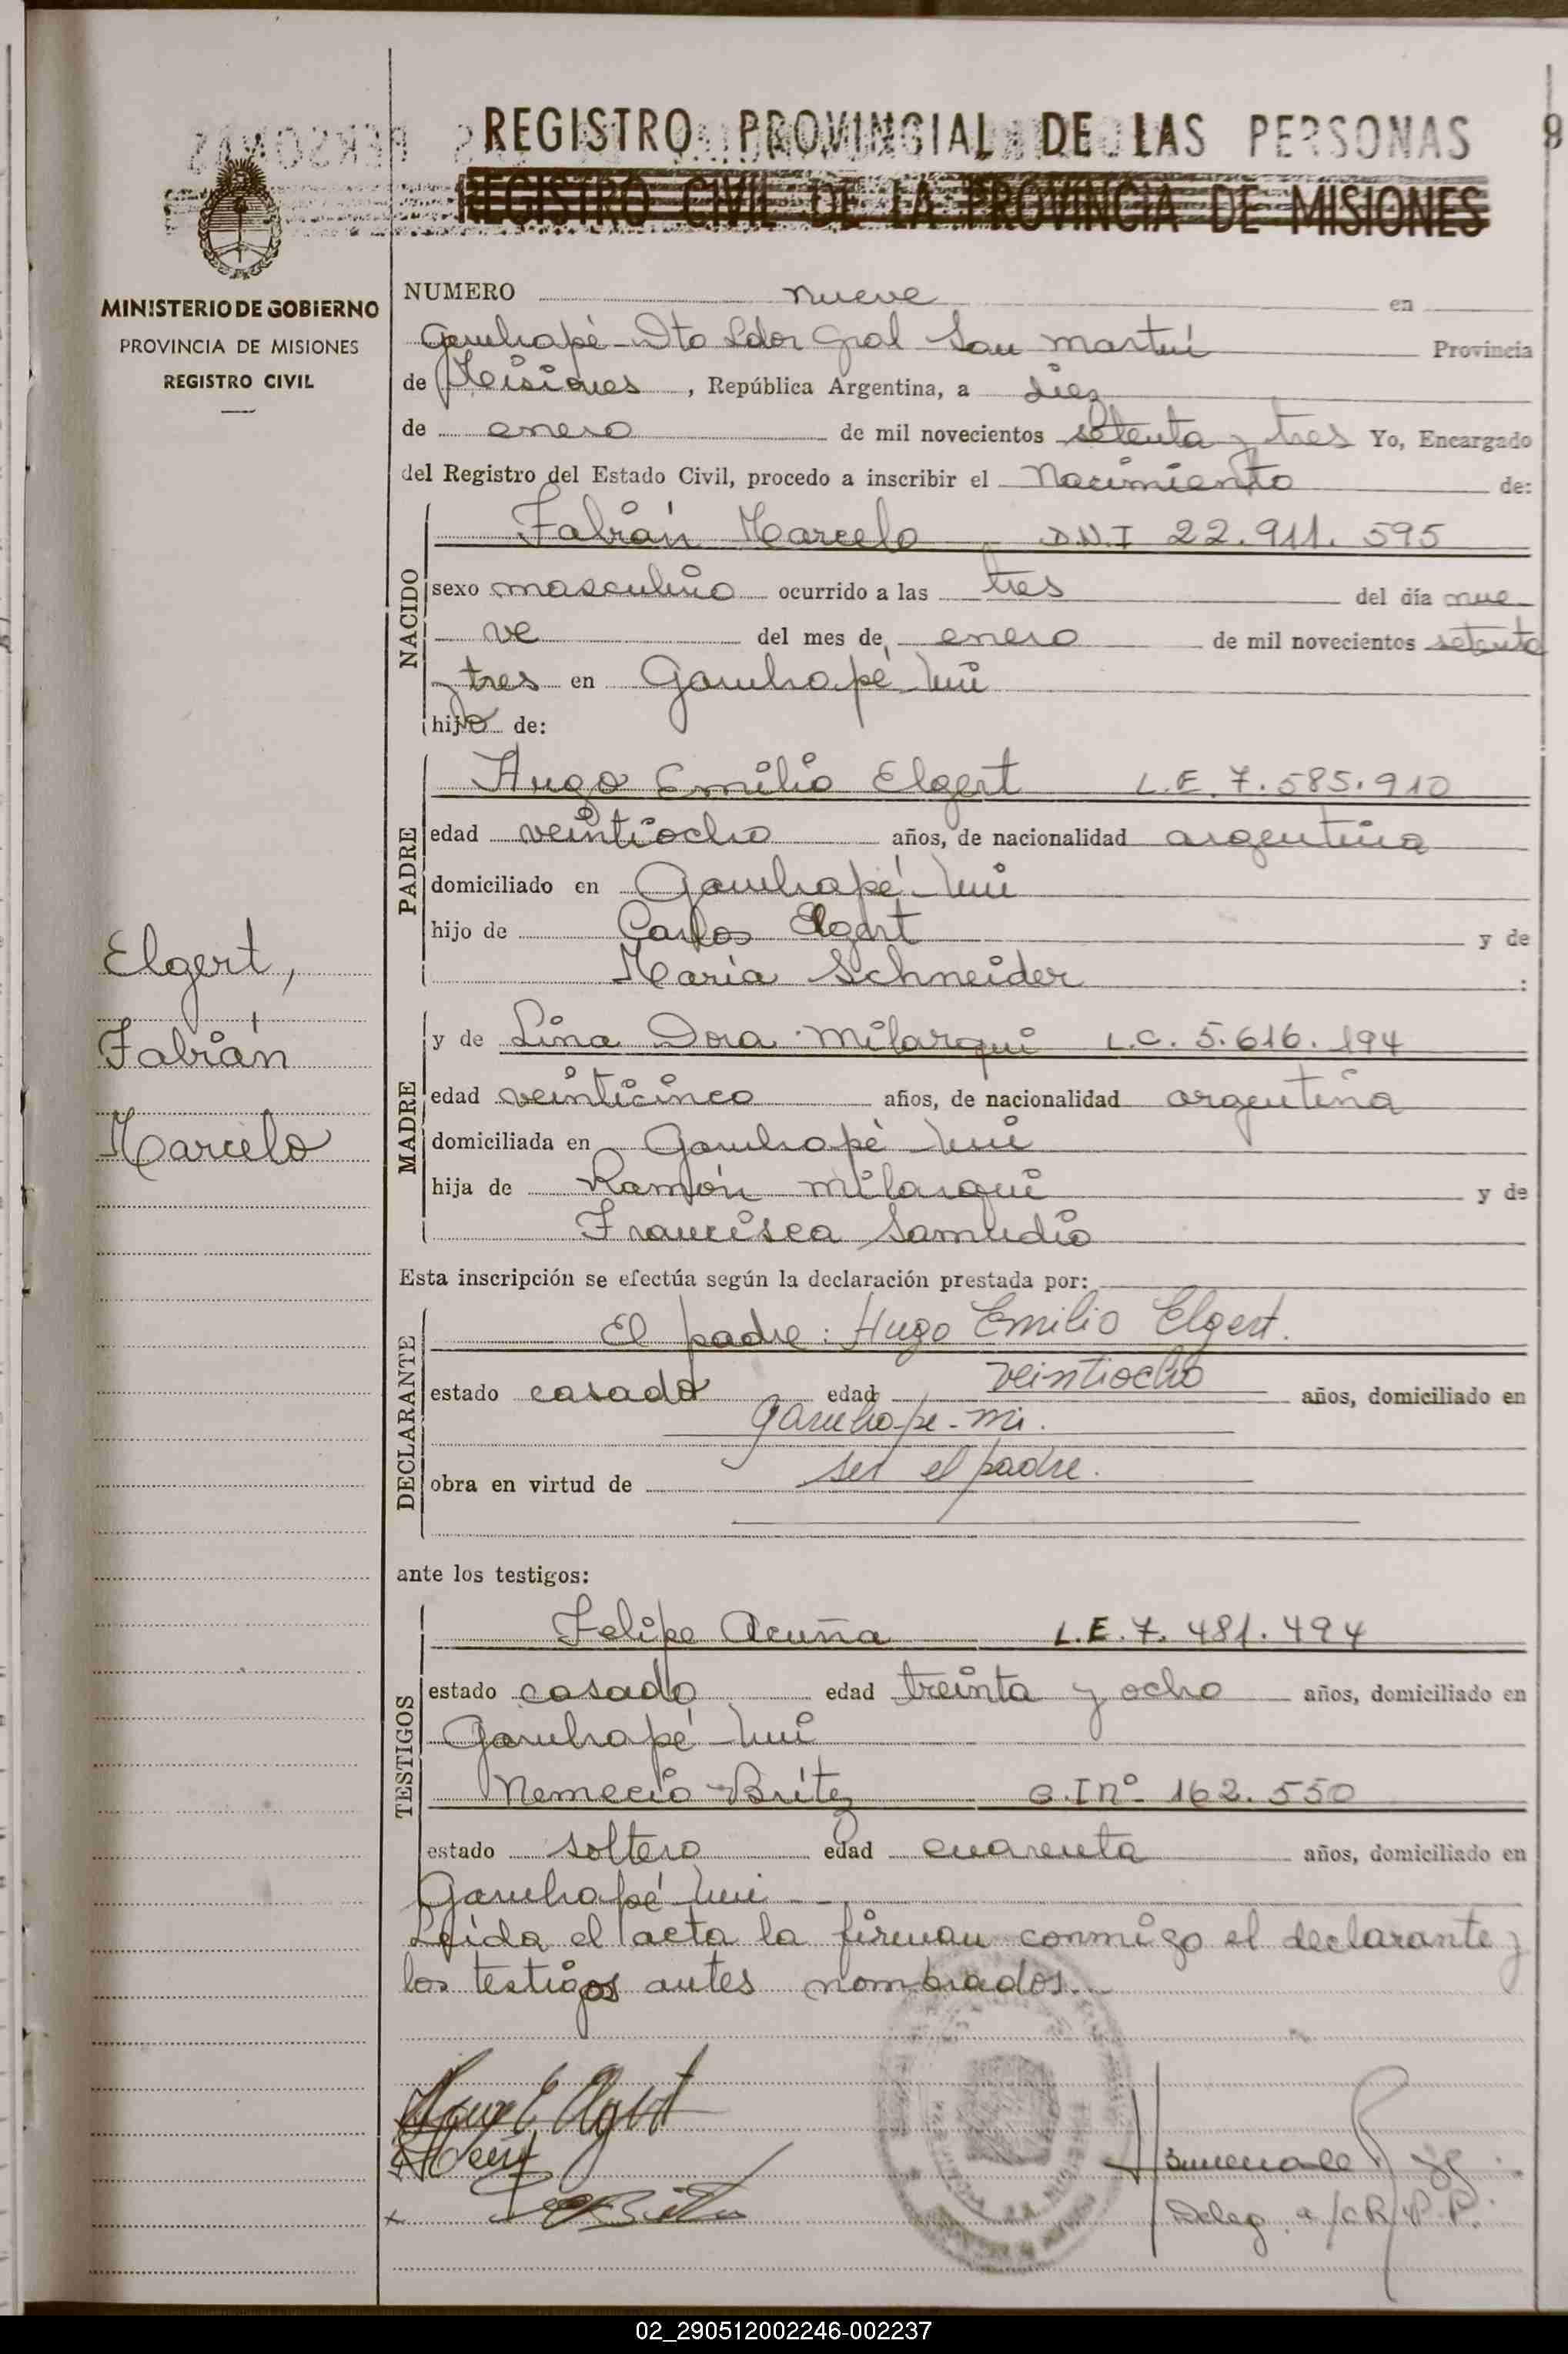 REGISTRO PROVINCIAL DE LAS PERSONAS
REGISTRO CIVIL DE LA PROVINCIA DE MISIONES
MINISTERIO DE GOBIERNO
PROVINCIA DE MISIONES
REGISTRO CIVIL
Elgert,
Fabián
Marcelo
NUMERO nueve en
Garuhapé - Dto Ldor Gral San Martín Provincia
de Misiones, República Argentina, a diez
de enero de mil novecientos setenta y tres Yo, Encargado
del Registro del Estado Civil, procedo a inscribir el Nacimiento de:
NACIDO
Fabián Marcelo D.N.I 22.911.595
sexo masculino ocurrido a las tres del día nue
ve del mes de enero de mil novecientos setenta
y tres en Garuhapé Mí
hijo de:
PADRE
Hugo Emilio Elgert L.E. 7.585.910
edad veintiocho años, de nacionalidad argentina
domiciliado en Garuhapé Mí
hijo de Carlos Elgert y de
María Schneider :
MADRE
y de Lina Dora Milarqui L.C. 5.616.194
edad veinticinco años, de nacionalidad argentina
domiciliada en Garuhapé Mí
hija de Ramón Milarqui y de
Francisca Samudio
Esta inscripción se efectúa según la declaración prestada por:
DECLARANTE
El padre: Hugo Emilio Elgert.
estado casado edad veintiocho años, domiciliado en
Garuhape-mi.
obra en virtud de ser el padre.
ante los testigos:
TESTIGOS
Felipe Acuña L.E. 7.481.494
estado casado edad treinta y ocho años, domiciliado en
Garuhapé Mí
Nemecio Britez C.I nº 162.550
estado soltero edad cuarenta años, domiciliado en
Garuhapé Mi
Leída el acta la firman conmigo el declarante y
los testigos antes nombrados.
Deleg.
02_290512002246-002237